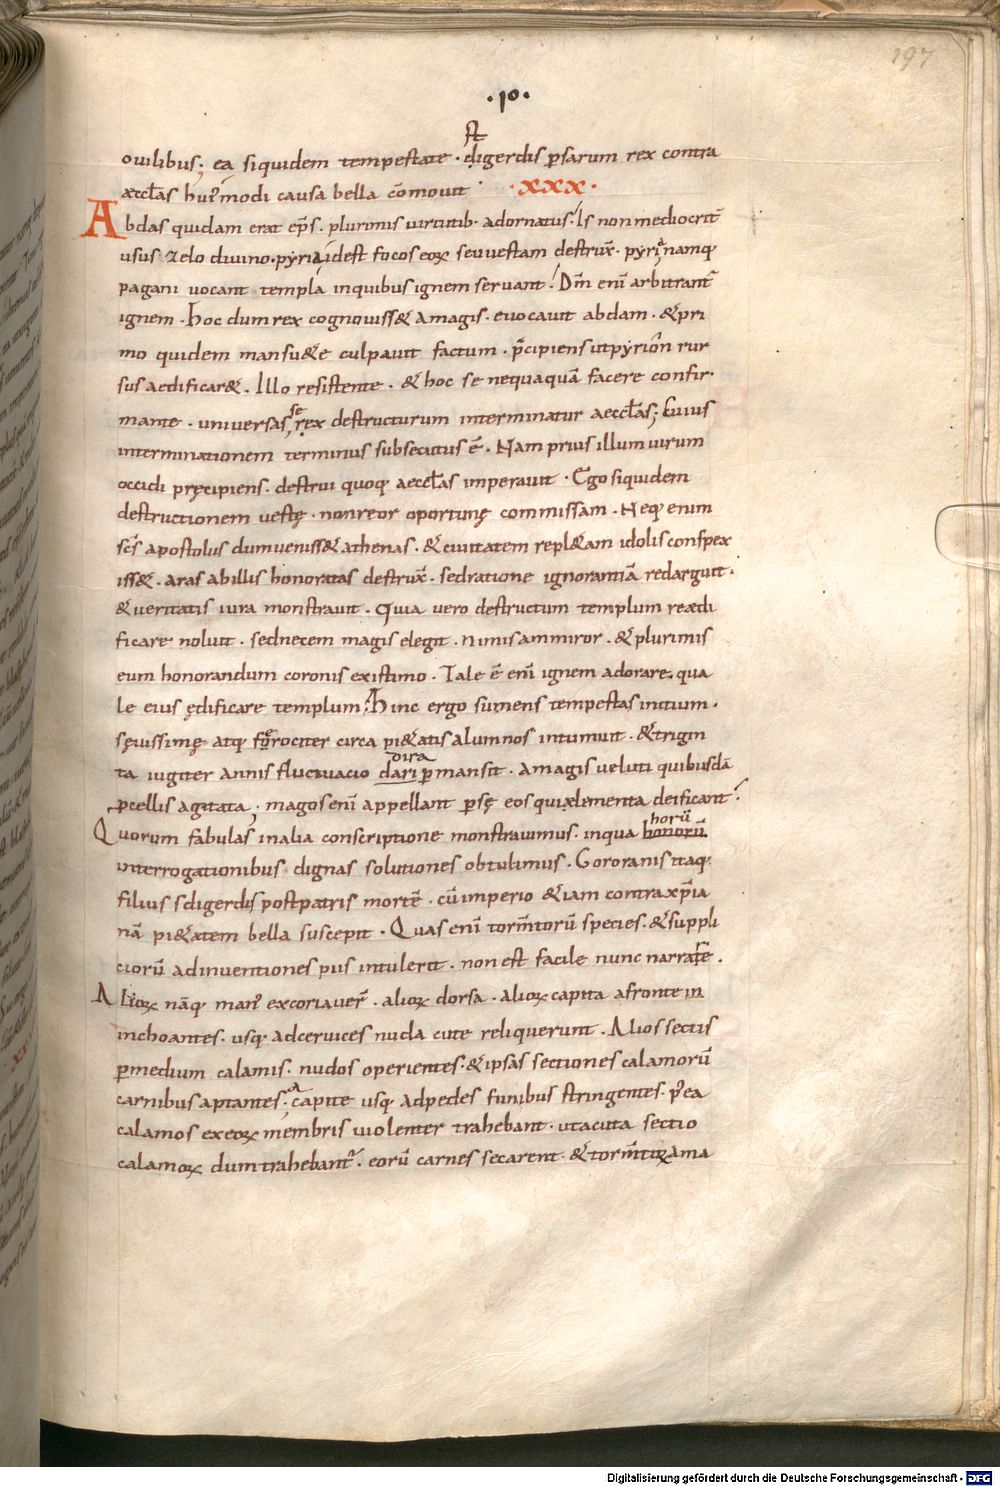 197
·10·
st
ouilibus; ea siquidem tempestate · digerdis psarum rex contra
aeccl̄as hui᾽modi causa bella cōmouit · xxx ·
Abdas quidam erat ep̄s . plurimis uirtutib· adornatus. Is non mediocrit᷑
usus zelo diuino · pyria idest focos eoꝝ seu uestam destrux̄ · pyria namq;
pagani uocant templa inquibus ignem seruant. Dm̄ eni᷑ arbitrant᷑
ignem · Hoc dum rex cognouiss& amagis · euocauit abdam · &pri
mo quidem mansu&e culpauit factum · p̄cipiens ut pyriōn rur
sus aedificar& . Illo resistente . & hoc se nequaquā facere confir·
mante · uniuersas, se rex destructurum interminatur aeccl̄as; cuius
interminationem terminus subsecutus ē . Nam prius illum uirum
occidi pręcipiens . destrui quoq; aeccl̄as imperauit · Ego siquidem
destructionem uestę · non reor oportunę commissam · Neq; enim
sc̄s apostolus dum ueniss& athenas . & ciuitatem repl&am idolis conspex
iss& . aras abillis honoratas destrux̄ . sedratione ignorantiā redarguit .
& ueritatis iura monstrauit . Quia uero destructum templum reædi
ficare noluit . sednecem magis elegit . nimis ammiror . & plurimis
eum honorandum coronis existimo . Tale ē eni᷑ ignem adorare, qua
le eius ędificare templum. Hinc ergo sumens tempestas initium .
sęuissimę atq; ferociter circa pi&atis alumnos intumuit . & trigin
dira
ta iugiter annis fluctuacio dari pmansit . Amagis ueluti quibusdā
pcellis agitata ; magos eni᷑ appellant psę eos qui ælementa deificant.
horū
Quorum fabulas inalia conscriptione monstrauimus . inqua honorū
interrogationibus dignas solutiones obtulimus . Gororanis itaq;
filius sdigerdis postpatris mortē . cū imperio &iam contra xp̄ia
nā pi&atem bella suscepit . Quas eni᷑ torm̄torū species . & suppli
ciorū adinuentiones piis intulerit . non est facile nunc narrare .
Alioꝝ nāq; man᾽ excoriauer᷑ . alioꝝ dorsa . alioꝝ capita afronte in
inchoantes . usq; adceruices nuda cute reliquerunt . Alios sectis
pmedium calamis . nudos operientes . & ipsas sectiones calamorū
carnibus aptantes . a capite usq; adpedes funibus stringentes . p᾽ea
calamos exeoꝝ membris uiolenter trahebant . ut acuta sectio
calamoꝝ dum trahebant᷑ . eorū carnes secarent . & torm̄tis ama
Digitalisierung gefördert durch die Deutsche Forschungsgemeinschaft - DFG